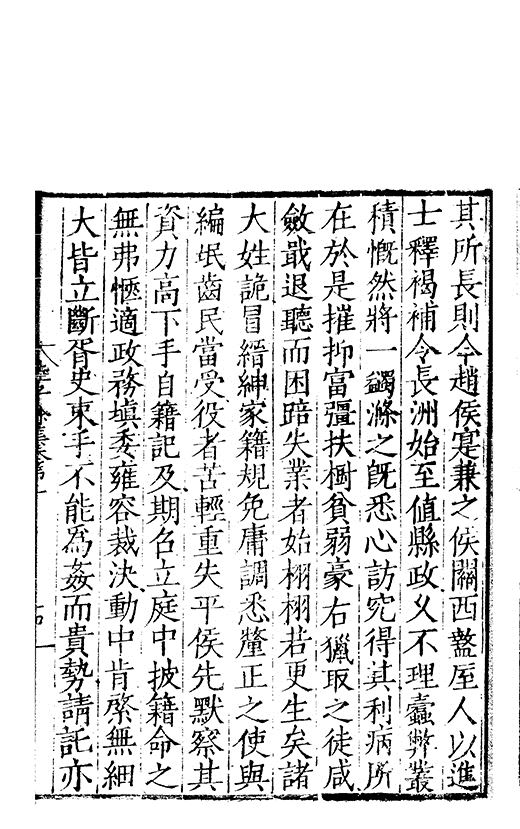 其所長則今趙侯寔兼之侯關西盩厔人以進
士釋褐補令長洲始至值縣政乂不理蠧弊叢
積慨然將一蠲滌之旣悉心訪究得其利病所
在於是摧抑富彊扶樹貧弱豪右獵取之徒咸
斂戢退聽而困踣失業者始栩栩若更生矣諸
大姓詭冒縉紳家籍規免庸調悉釐正之使與
編氓齒民當受役者苦輕重失平侯先默察其
資力高下手自籍記及期召立庭中披籍命之
無弗愜適政務塡委雍容裁決動中肯綮無細
大皆立斷胥史束手不能爲姦而貴勢請託亦